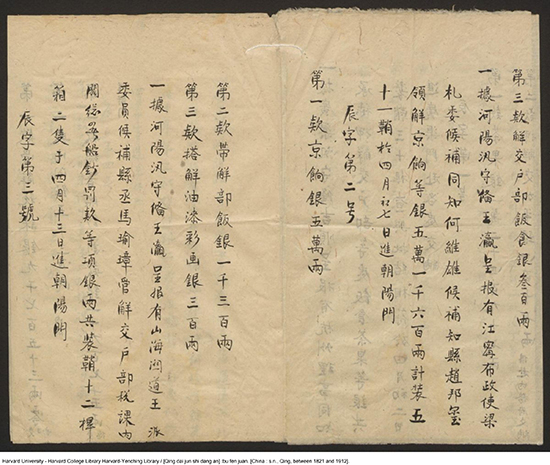 第三款解交戶部飯食銀叁百兩
一據河陽汛守俻王瀛呈报有江寧布政使梁
札委候補同知何維雄候補知縣趙邦璽
領解京餉等銀五萬一千六百兩計装五
十一鞘於四月初七日進朝陽門
辰字第二号
第一款京餉銀五萬兩
第二款帶解部飯銀一千三百兩
第三款搭解油漆彩画銀三百兩
一據河陽汛守俻王瀛呈报有山海関道王派
委員候補縣丞馬瑜璋管解交戶部税課内
関総号船鈔罰欵等項銀兩共装鞘十二桿
箱二隻于四月十三日進朝陽門
辰字第三號
Harvard University - Harvard College Library Harvard-Yenching Library / [Qing dai jun shi dang an] bu fen juan. [China : s.n., Qing, between 1821 and 1912].